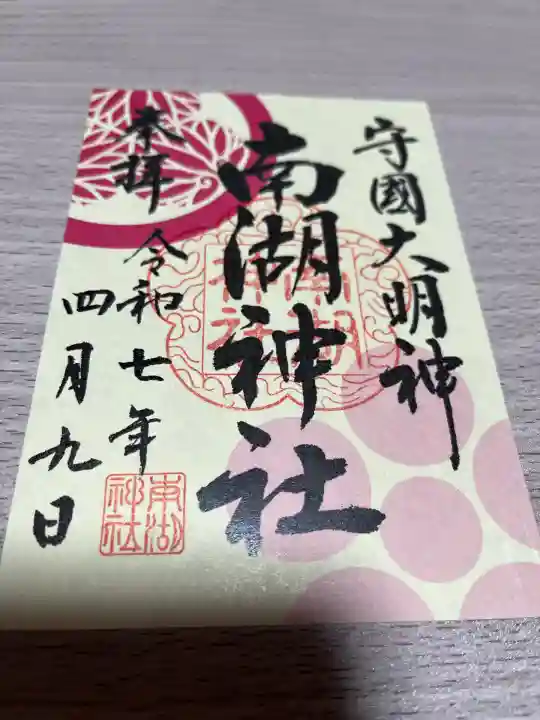 守國大明神
南湖神社
奉拝
令和七年
四月九日
南湖
神社
南湖
神社